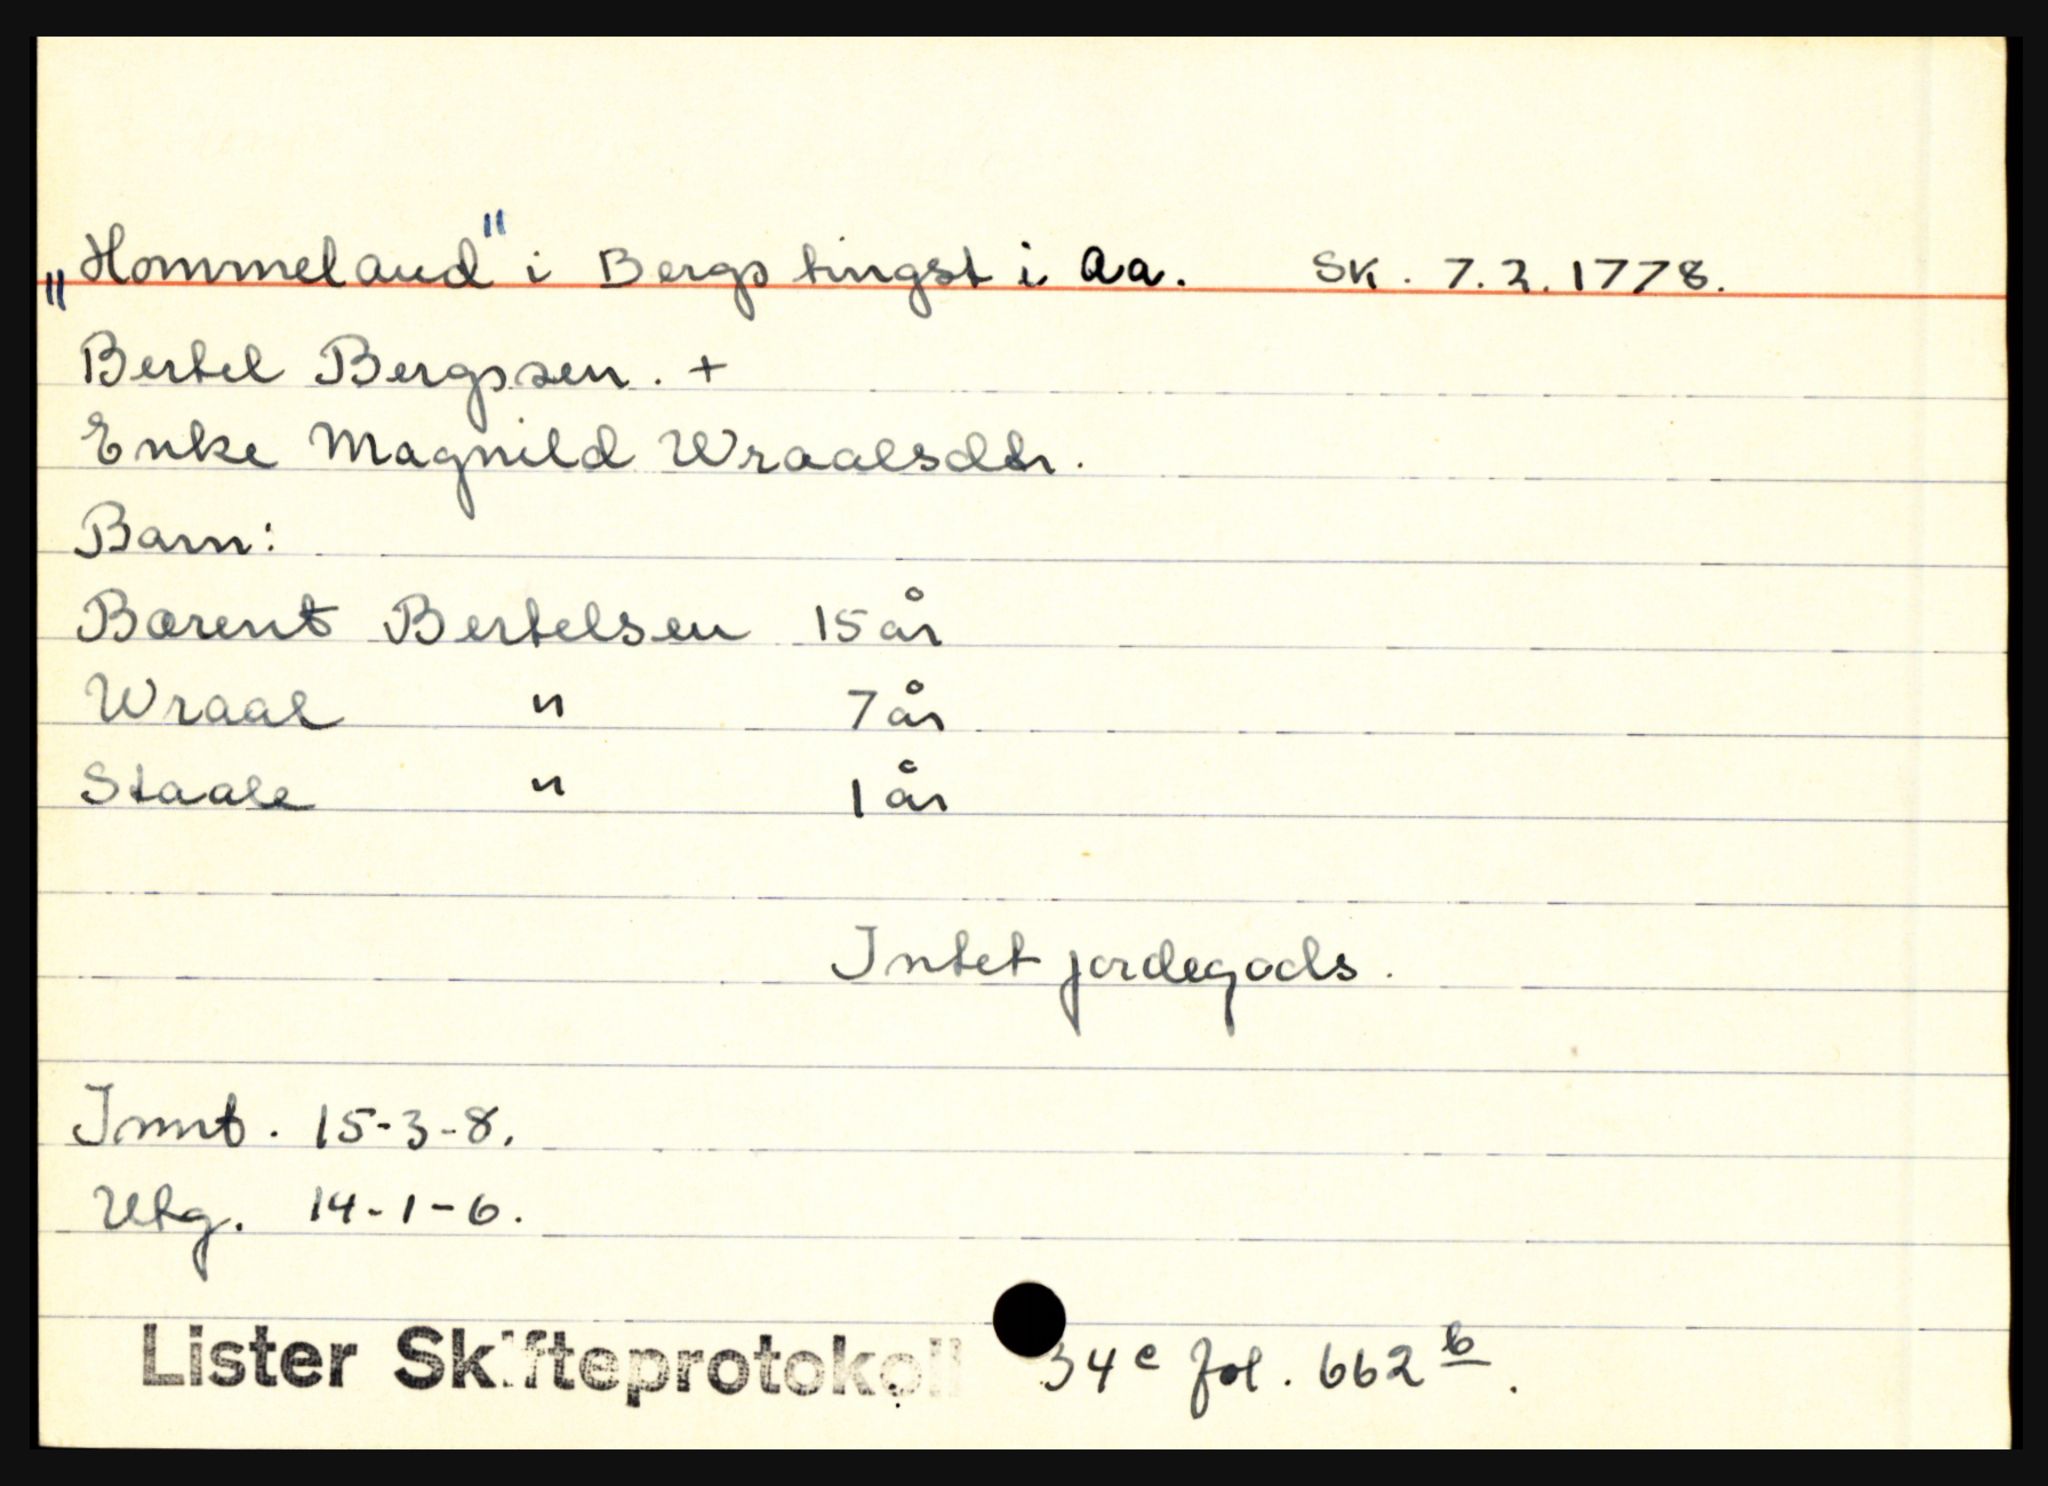 "Hommeland" i Bergs tingst i Aa. SK. 7.2.1778.
Bertel Bergssen. +
Enke Magnild Wraalsdtr.
Barn:
Barent Bertelsen 15 år
Wraal " 7 år
Staale " 1 år
Intet jordegods.
Innt. 15-3-8.
Utg. 14-1-6.
Lister Skifteprotokoll 34 c fol. 662 b.